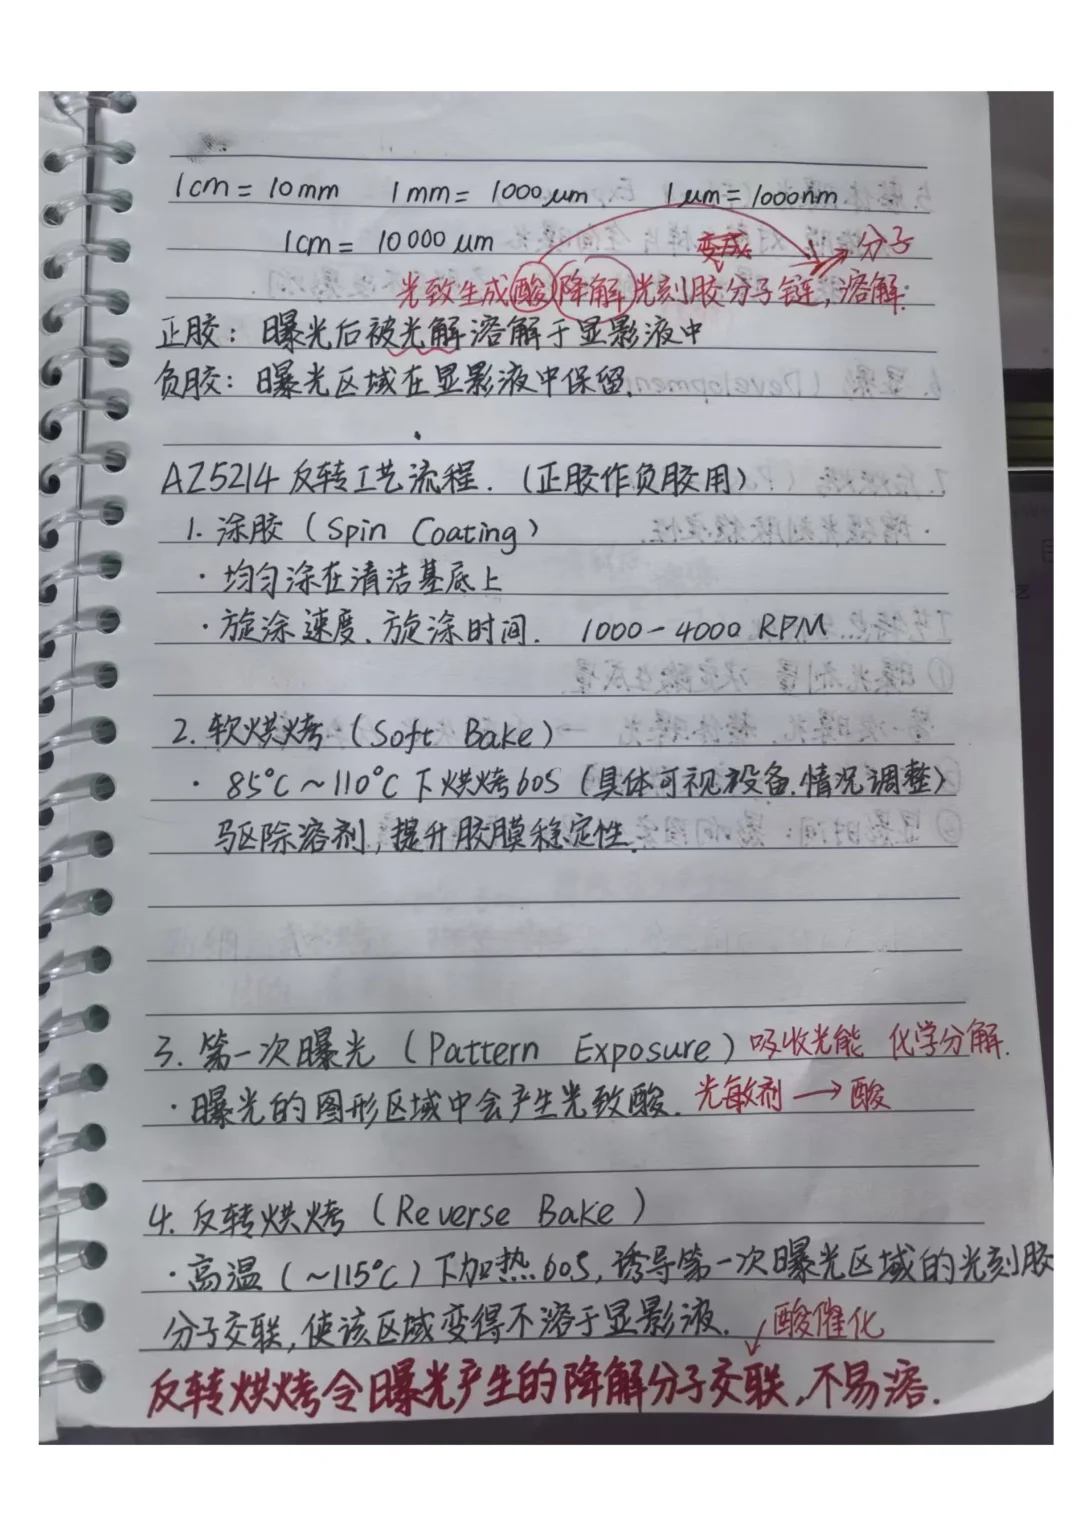 1cm = 10mm 1mm = 1000μm 1μm = 1000nm
1cm = 10000μm 变成 分子
光致生成酸降解光刻胶分子链,溶解.
正胶: 曝光后被光解溶解于显影液中
负胶: 曝光区域在显影液中保留.
AZ5214反转工艺流程. (正胶作负胶用)
1. 涂胶 (Spin Coating)
· 均匀涂在清洁基底上
· 旋涂速度、旋涂时间. 1000-4000 RPM
2. 软烘烤 (Soft Bake)
· 85℃~110℃下烘烤60S (具体可视设备.情况调整)
驱除溶剂,提升胶膜稳定性.
3. 第一次曝光 (Pattern Exposure) 吸收光能 化学分解.
· 曝光的图形区域中会产生光致酸. 光敏剂 → 酸
4. 反转烘烤 (Reverse Bake)
· 高温 (~115℃) 下加热60S, 诱导第一次曝光区域的光刻胶
分子交联, 使该区域变得不溶于显影液. 酸催化
反转烘烤令曝光产生的降解分子交联,不易溶.